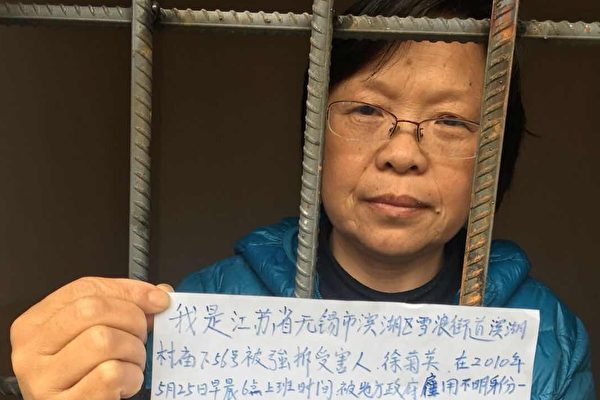 我是江苏省无锡市滨湖区雪浪街道滨湖
村庙下56号被强拆受害人.徐菊英.在2010年
5月25日早晨6点上班时间被地方政府雇用不明身份一